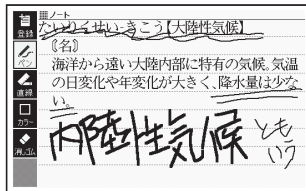 ノート
登録
ペン
直線
カラー
消しゴム
たいりくせい-きこう【大陸性気候】
〘名〙
海洋から遠い大陸内部に特有の気候。気温
の日変化や年変化が大きく、降水量は少な
い。
内陸性気候
とも
いう